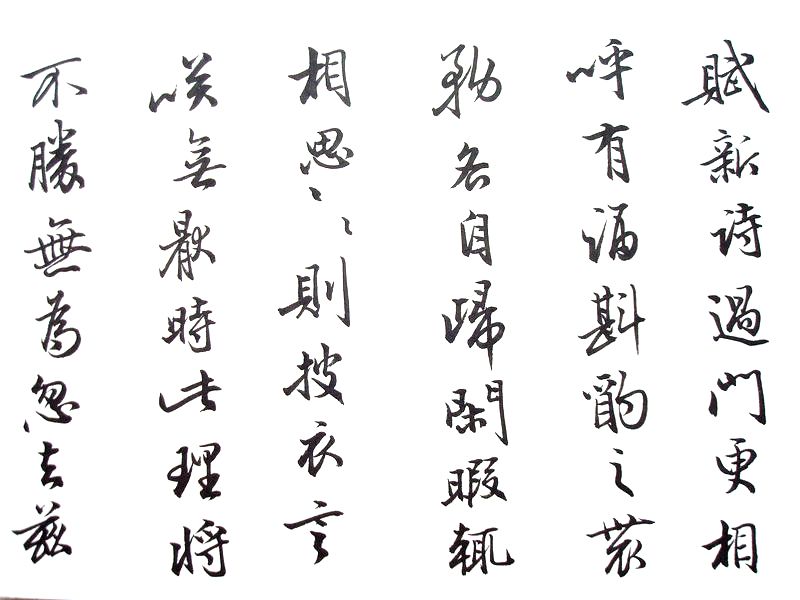 賦新詩過門更相
呼有酒斟酌之農
務各自歸閑暇輒
相思〻〻則披衣言
咲無厭時此理將
不勝無為忽去茲